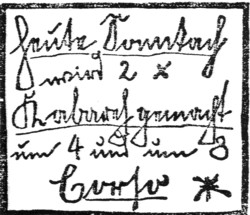 heute Sonntag
wird 2 x
Kabaret gemacht
um 4 und um 8
Corso *